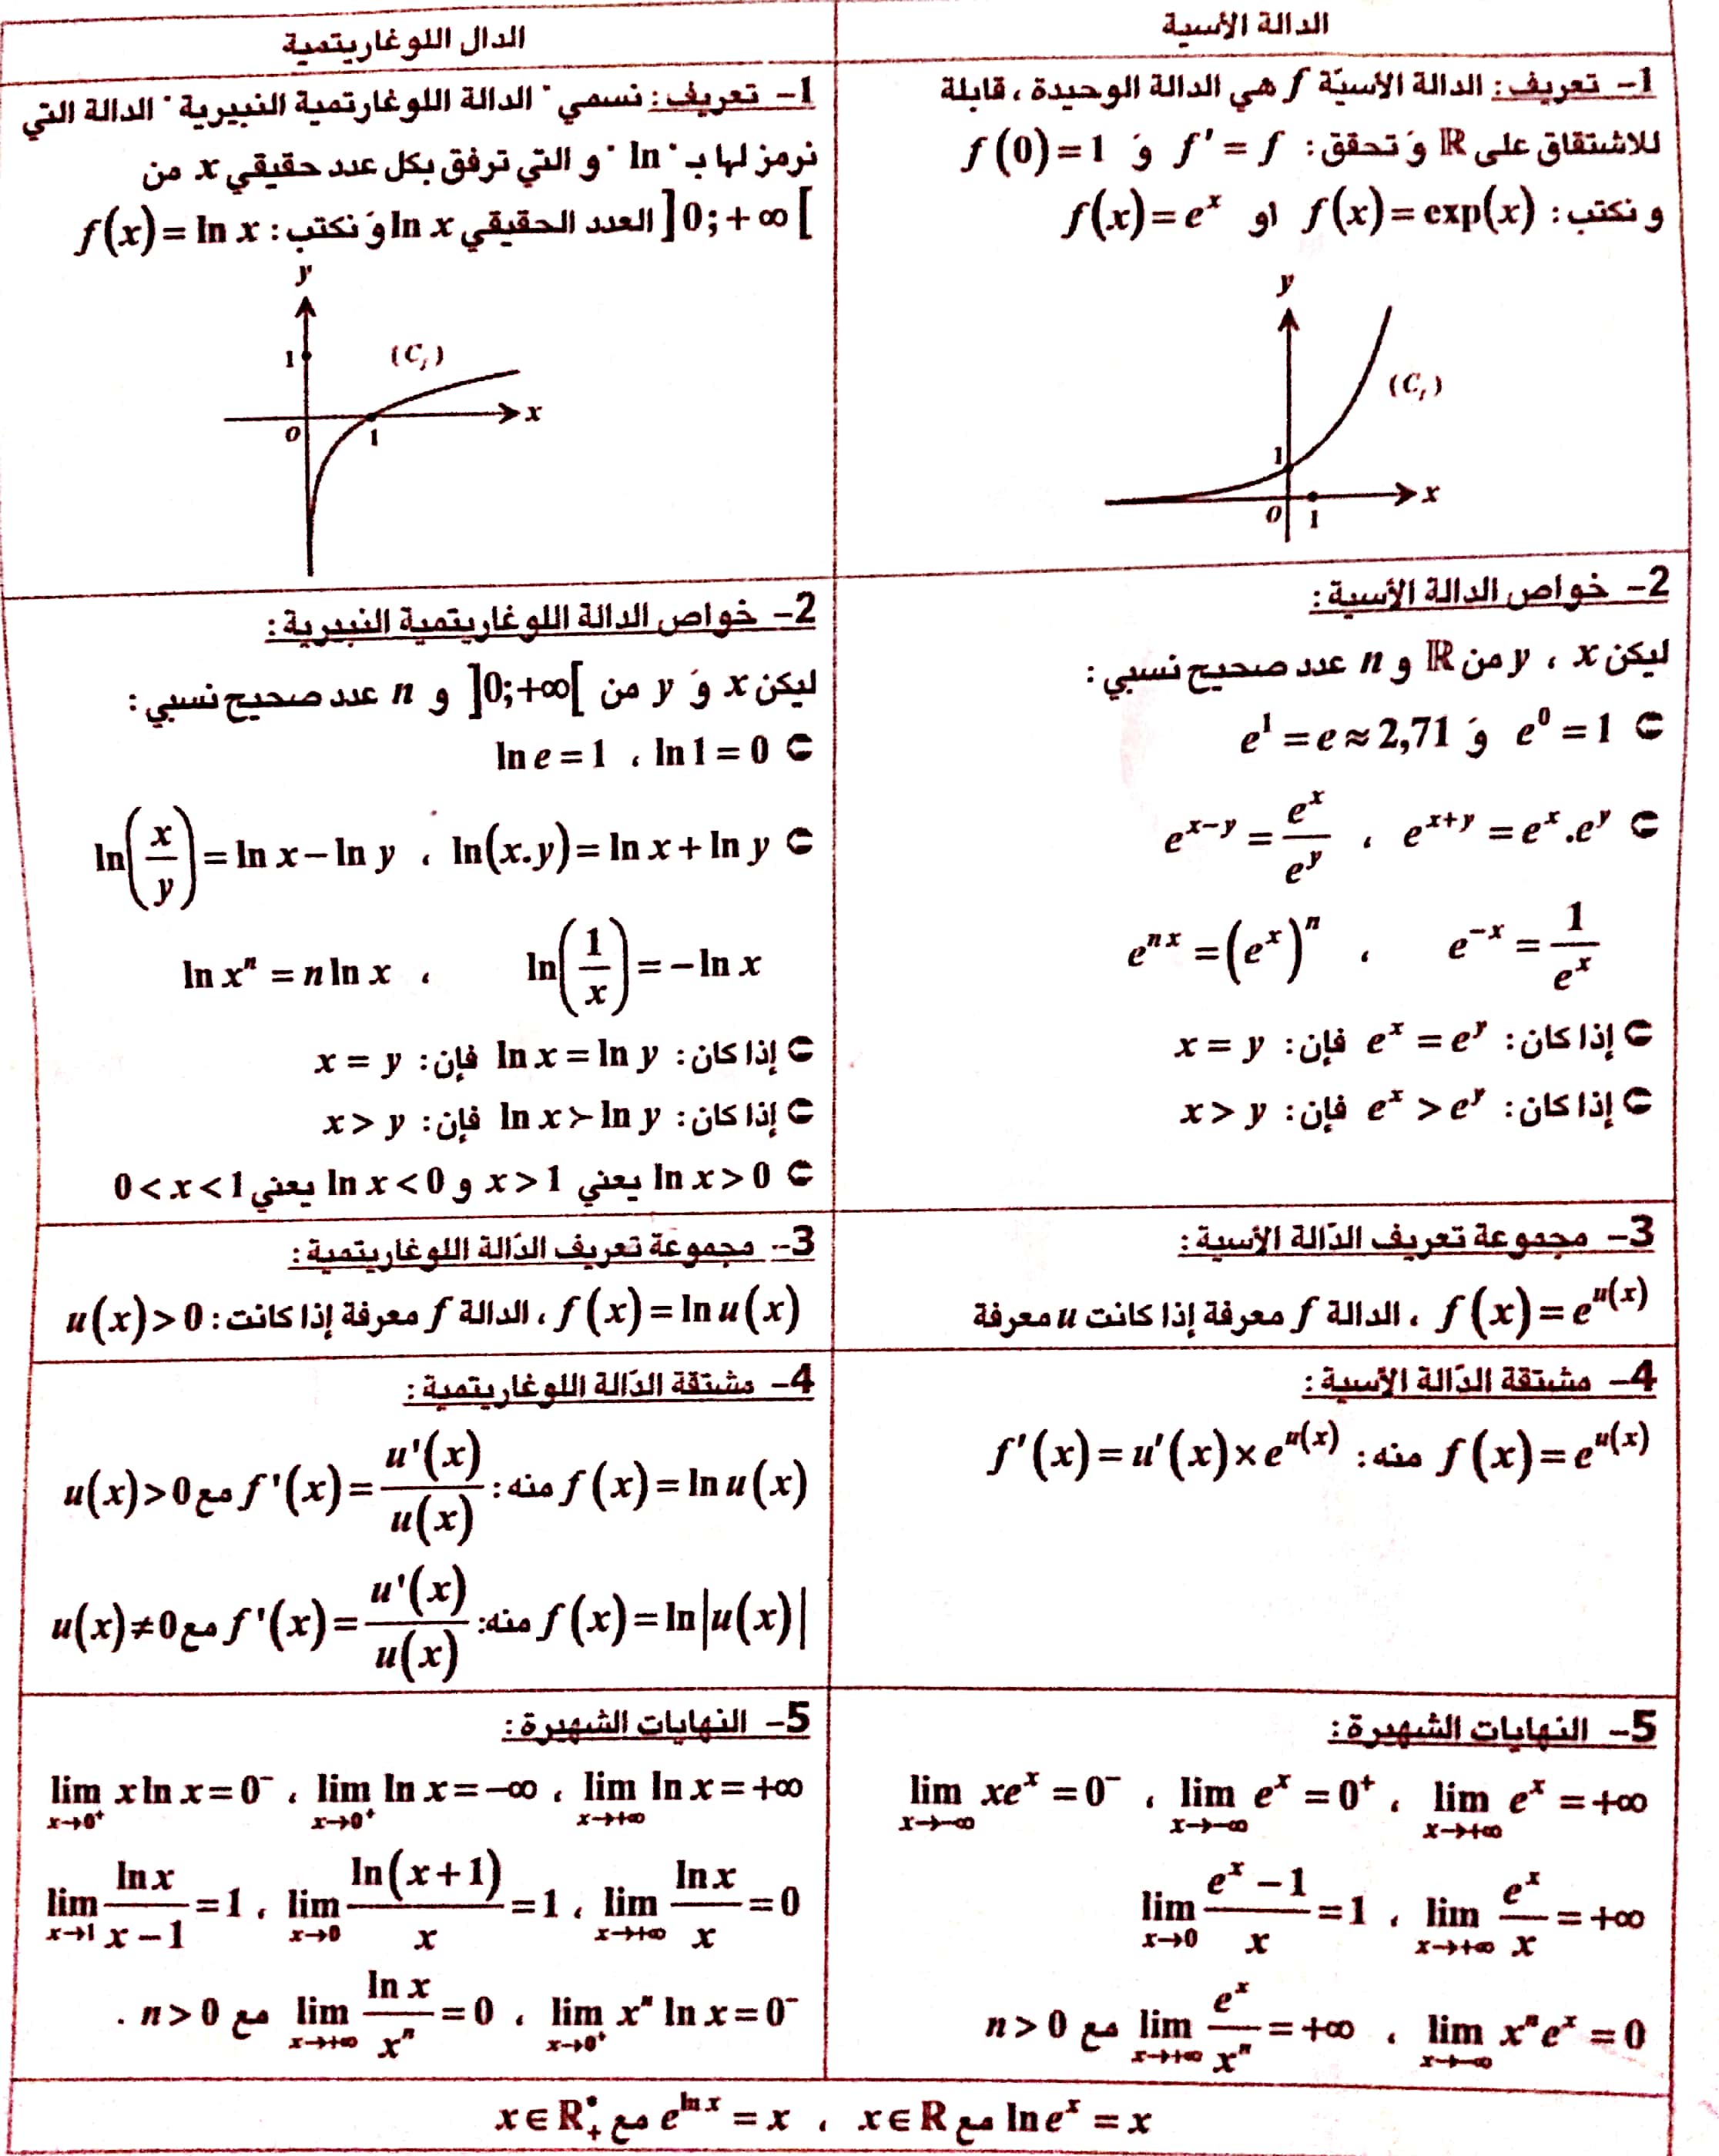 الدالة الأسية
1- تعريف: الدالة الأسيّة f هي الدالة الوحيدة ، قابلة
للاشتقاق على ℝ وَ تحقق: f' = f وَ f(0)=1
و نكتب: f(x)=exp(x) او f(x)=eˣ
y
(C_f)
1
x
0 1
2- خواص الدالة الأسية:
ليكن x ، y من ℝ و n عدد صحيح نسبي:
⊂ e⁰ = 1 وَ e¹ = e ≈ 2,71
⊂ e^{x+y} = e^x.e^y ، e^{x-y} = \frac{e^x}{e^y}
e^{-x} = \frac{1}{e^x} ، e^{nx} = (e^x)^n
⊂ إذا كان: e^x = e^y فإن: x = y
⊂ إذا كان: e^x > e^y فإن: x > y
3- مجموعة تعريف الدّالة الأسية:
f(x)=e^{u(x)} ، الدالة f معرفة إذا كانت u معرفة
4- مشتقة الدّالة الأسية:
f(x)=e^{u(x)} منه: f'(x)=u'(x)×e^{u(x)}
5- النهايات الشهيرة:
\lim_{x→+∞} e^x = +∞ ، \lim_{x→-∞} e^x = 0⁺ ، \lim_{x→-∞} xe^x = 0⁻
\lim_{x→+∞} \frac{e^x}{x} = +∞ ، \lim_{x→0} \frac{e^x - 1}{x} = 1
\lim_{x→-∞} x^n e^x = 0 ، \lim_{x→+∞} \frac{e^x}{x^n} = +∞ مع n > 0
الدال اللوغاريتمية
1- تعريف: نسمي " الدالة اللوغارتمية النبيرية " الدالة التي
نرمز لها بـ " ln " و التي ترفق بكل عدد حقيقي x من
]0;+∞[ العدد الحقيقي ln x وَ نكتب: f(x)= ln x
y
1 (C_f)
x
0 1
2- خواص الدالة اللوغاريتمية النبيرية:
ليكن x وَ y من ]0;+∞[ و n عدد صحيح نسبي:
⊂ ln 1 = 0 ، ln e = 1
⊂ ln(x.y)= ln x + ln y ، ln(\frac{x}{y})= ln x - ln y
ln(\frac{1}{x}) = -ln x ، ln x^n = n ln x
⊂ إذا كان: ln x = ln y فإن: x = y
⊂ إذا كان: ln x ≻ ln y فإن: x > y
⊂ ln x > 0 يعني x > 1 و ln x < 0 يعني 0 < x < 1
3- مجموعة تعريف الدّالة اللوغاريتمية:
f(x)= ln u(x) ، الدالة f معرفة إذا كانت: u(x)>0
4- مشتقة الدّالة اللوغاريتمية:
f(x)= ln u(x) منه: f'(x)= \frac{u'(x)}{u(x)} مع u(x)>0
f(x)= ln|u(x)| منه: f'(x)= \frac{u'(x)}{u(x)} مع u(x)≠0
5- النهايات الشهيرة:
\lim_{x→+∞} ln x = +∞ ، \lim_{x→0⁺} ln x = -∞ ، \lim_{x→0⁺} x ln x = 0⁻
\lim_{x→+∞} \frac{ln x}{x} = 0 ، \lim_{x→0} \frac{ln(x+1)}{x} = 1 ، \lim_{x→1} \frac{ln x}{x-1} = 1
\lim_{x→0⁺} x^n ln x = 0⁻ ، \lim_{x→+∞} \frac{ln x}{x^n} = 0 مع n > 0 .
ln e^x = x مع x ∈ ℝ ، e^{ln x} = x مع x ∈ ℝ₊*